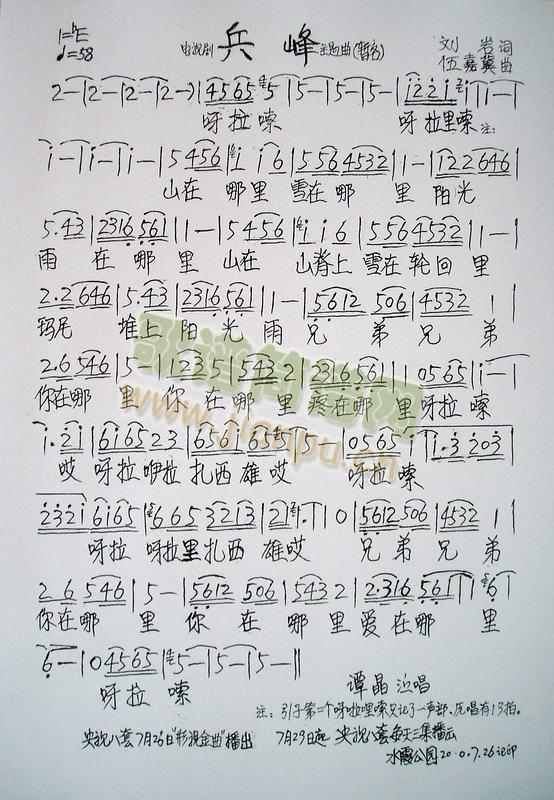 1=♭E
♩=58
电视剧 兵 峰 主题曲(暂名)
刘 岩 词
伍嘉冀 曲
2－|2－|2－|2－|4565 5|5－|5－|5－|i22i i|i－|
呀拉嗦 呀拉里嗦 注:
i－|i－|i－|5 456|i i6|556 4532|1－|122646|
山在 哪里 雪在哪 里 阳光
5.43|2316 561|1－|5 456|i i6|556 4532|1－|
雨 在哪里 山在 山脊上 雪在轮回 里
2.2646|5.43|2316 561|1－|5612 506|4532 1|
玛尼 堆上 阳光 雨 兄 弟兄 弟
2.6 546|5－|1235|5432|2316 561|1 0565|i－|
你在哪 里 你 在哪里 疼在哪 里呀拉 嗦
哎 呀拉咿拉 扎西 雄哎 呀拉 嗦
呀拉 呀拉里扎西 雄哎 兄弟兄 弟
2 6 546|5－|5612 506|5432|2.316 561|6|
你在哪 里 你 在 哪里爱在哪 里
6－|0 4565|5－|5－|5－‖
呀拉 嗦
谭晶 演唱
注: 引子第二个呀拉哩嗦只记了一声部、原唱有13拍。
央视八套7月26日"影视金曲"播出 7月29日起 央视八套每天三集播出
水霞公园2010.7.26记印
歌谱简谱网
www.jianpu.cn